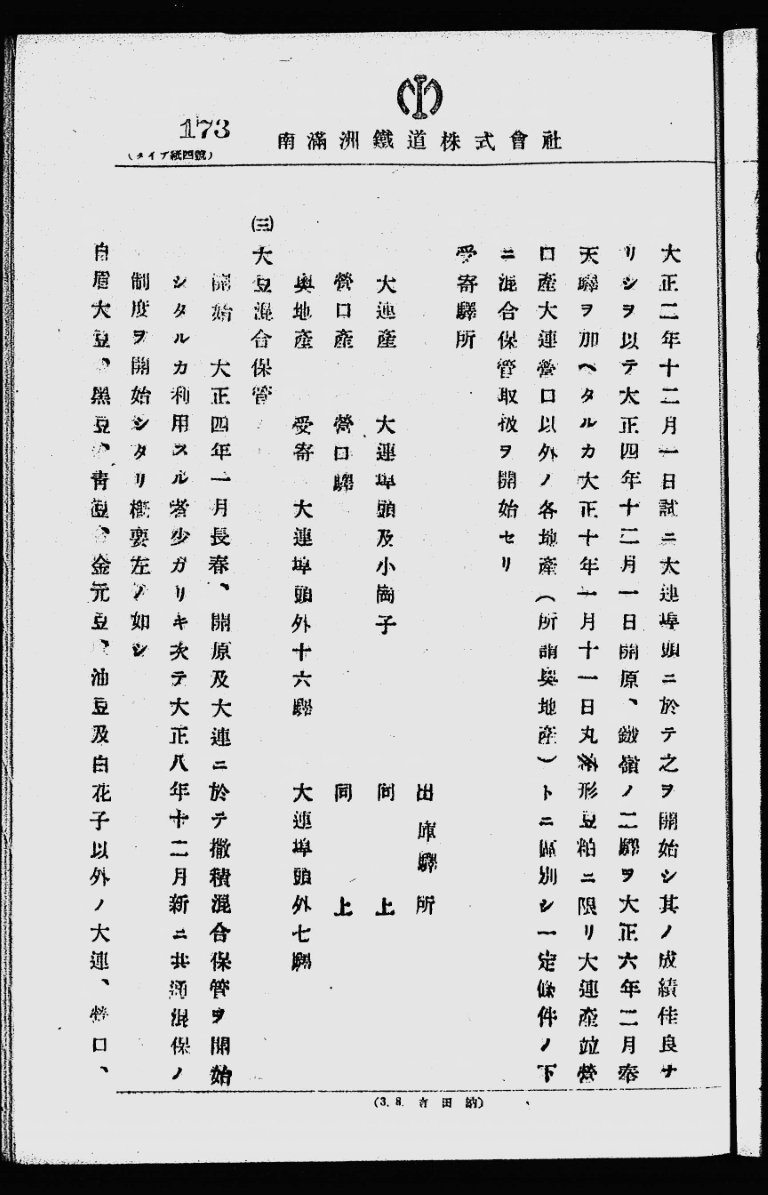 173
(タイプ紙四號)
南滿洲鐵道株式會社
大正二年十二月一日試ニ大連埠頭ニ於テ之ヲ開始シ其ノ成績佳良ナ
リシヲ以テ大正四年十二月一日開原、鐵嶺ノ二驛ヲ大正六年二月奉
天驛ヲ加ヘタルカ大正十年一月十一日丸形豆粕ニ限リ大連產竝營
口產大連營口以外ノ各地產(所謂奧地產)トニ區別シ一定條件ノ下
ニ混合保管取扱ヲ開始セリ
受寄驛所
出庫驛所
大連產 大連埠頭及小崗子 同上
營口產 營口驛 同上
奧地產 受寄 大連埠頭外十六驛 大連埠頭外七驛
(三)大豆混合保管
開始 大正四年一月長春、開原及大連ニ於テ撒積混合保管ヲ開始
シタルカ利用スル者少ガリキ次テ大正八年十二月新ニ共通混保ノ
制度ヲ開始シタリ概要左ノ如シ
白眉大豆、黑豆、靑豆、金元豆、油豆及白花子以外ノ大連、營口、
(3. 8. 吉田納)